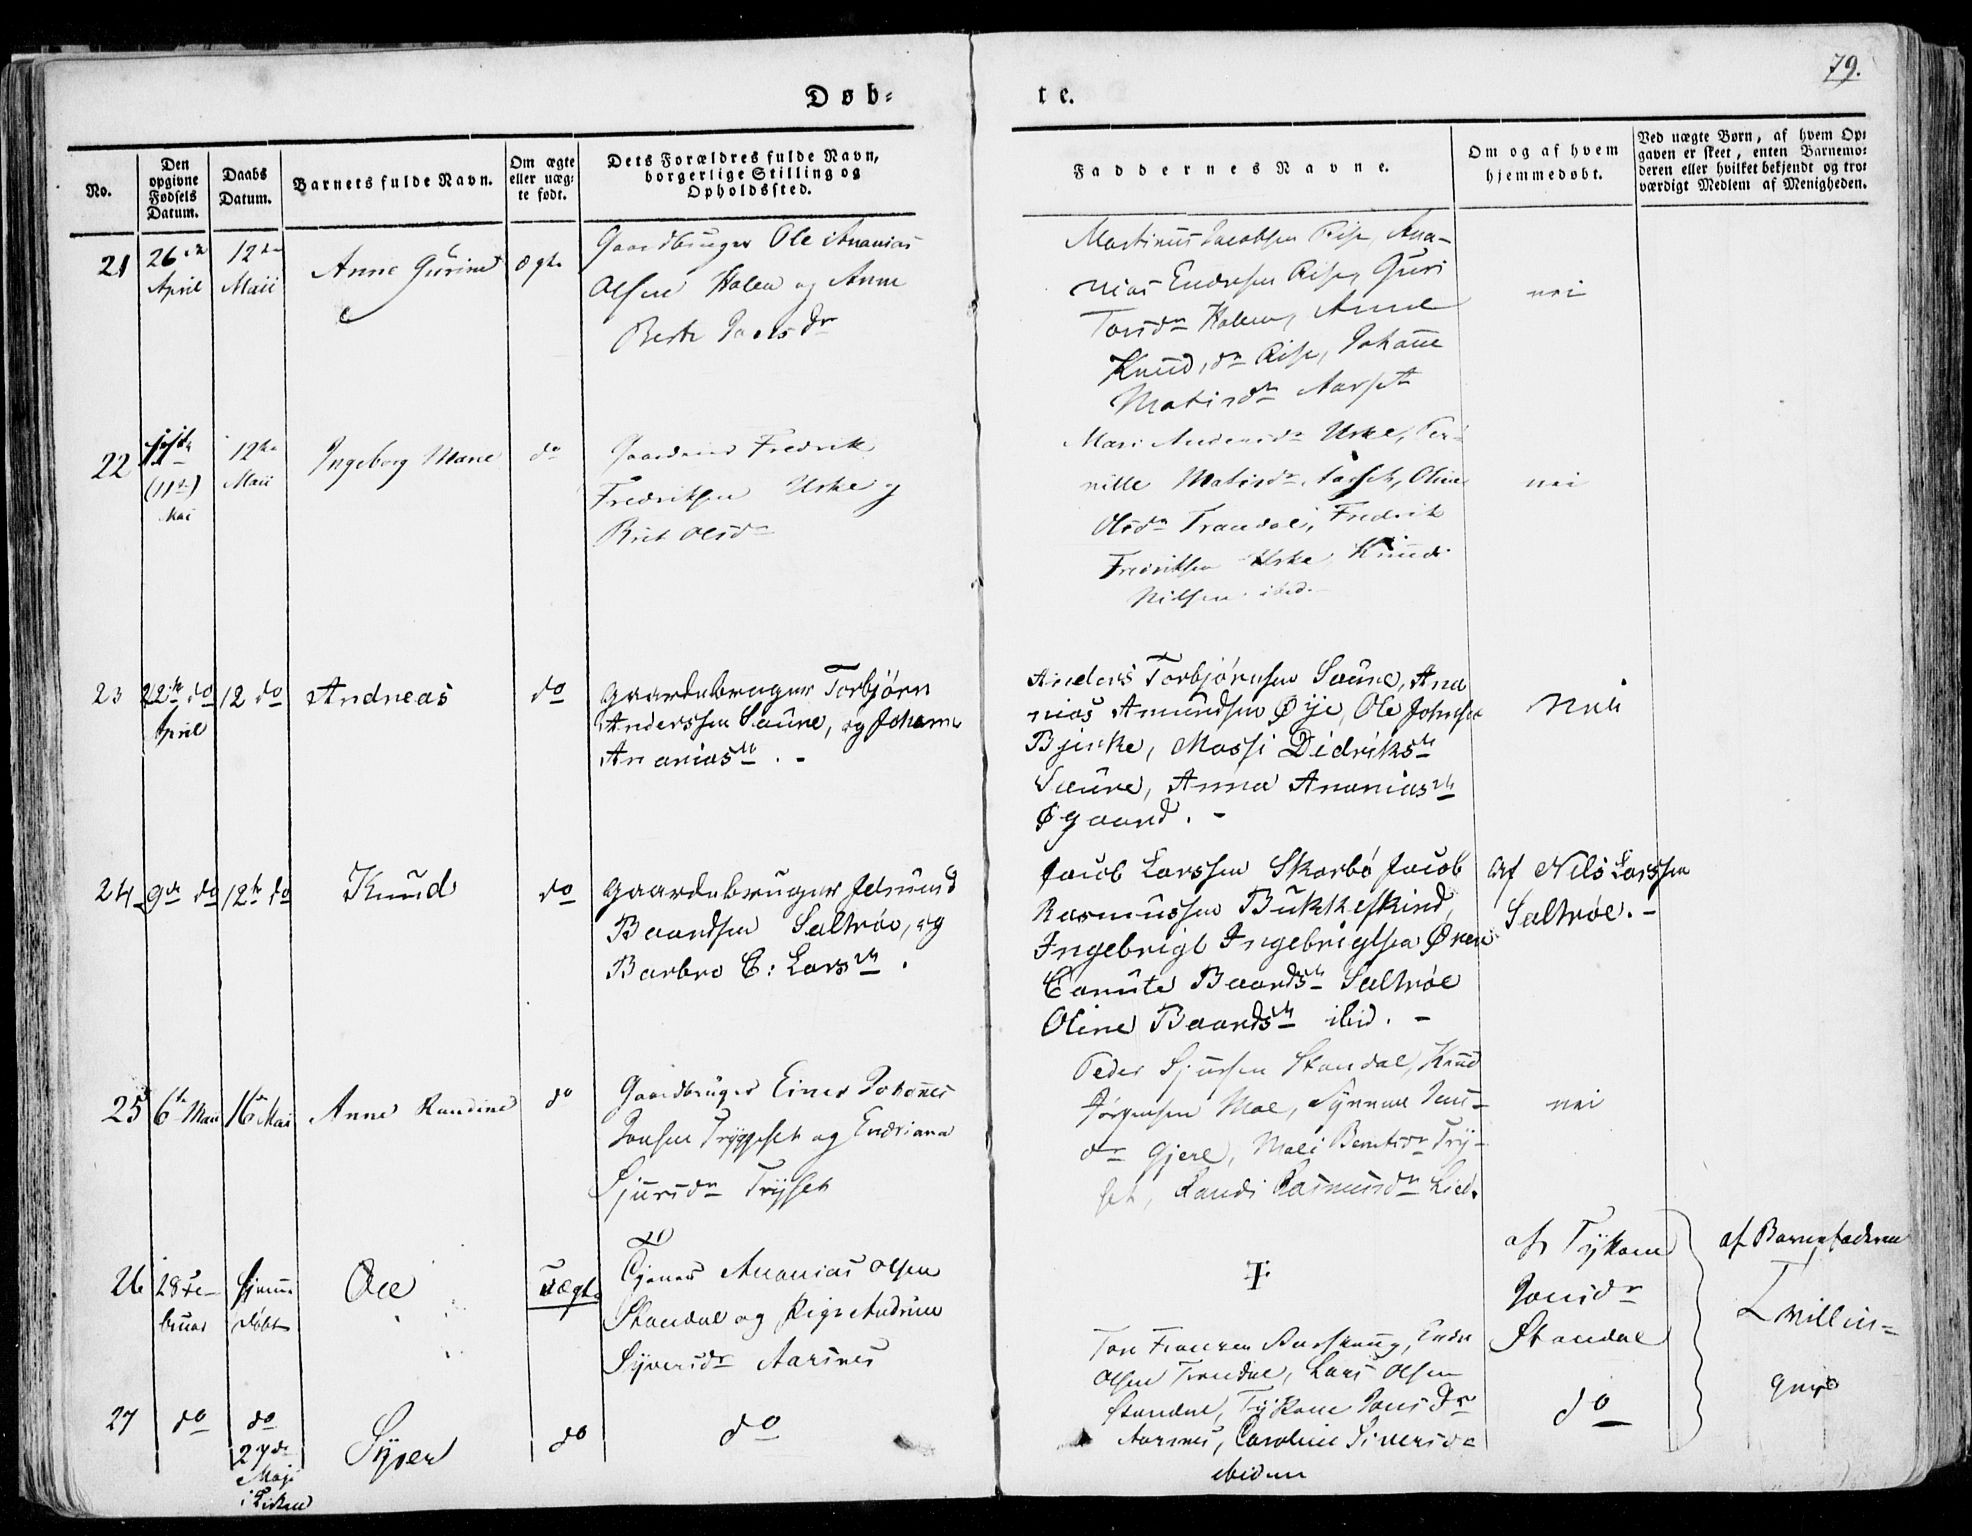 79.
Døb=
te.
No.
Den opgivne Fødsels Datum.
Daabs Datum.
Barnets fulde Navn.
Om ægte eller uæg= te født.
Dets Forældres fulde Navn, borgerlige Stilling og Opholdssted.
Faddernes Navne.
Om og af hvem hjemmedøbt.
Ved uægte Børn, af hvem Op= gaven er skeet, enten Barnemo= deren eller hvilket bekjendt og tro= værdigt Medlem af Menigheden.
21
26de April
12te Maii
Anne Gurine
ægte
Gaardbruger Ole Ananias
Olsen Halen og Anne
Berte Joets dr
Martinus Jacobsen Rise, Ana-
nias Endresen Rise, Guri
Torisdr Halen, Anne
Knud,dr Rise, Johanne
Matisdr Aarset
nei
22
(11te) Mai
12te Maii
Ingeborg Marie
do
Gaardmd Fredrik
Fredriksen Urke og
Brit Olsdr
Mari Andersdr Urke, Per-
nille Matisdr Aarset, Oline
Olsdr Trandal, Fredrik
Fredriksen Urke, Knud
Nilsen ibid.
nei
23
22de do April
12 do
Andreas
do
Gaardebruger Torbjørn
Anderssen Saure, og Johanne
Ananiasdtr . -
Anders Torbjørnsen Saure, Ana
nias Amundsen Øije, Ole Johnsen
Bjerke, Massi Didriksdtr
Saure, Anna Ananiasdtr
Øgaard. -
Nei
24
9de do
12te do
Knud
do
Gaardebruger Jetmund
Baardsen Saltrøe, og
Barbro E: Larsdtr .
Jacob Larssen Skarbø Jacob
Rasmussen Bukkeskind,
Ingebrigt Ingebrigtsen Øren
Canute Baardsdtr Saltrøe
Oline Baardsdtr ibid. -
Af Nils Larssen
Saltrøe. -
25
6te Maii
16de Mai
Anne Randine
do
Gaardbruger Einer Johannes
Jonsen Tryggeset og Endriana
Sjursdr Trygset
Peder Sjursen Standal, Knud
Jørgensen Moe, Synnøve Jens-
dr Gjere, Mali Berntsdr Try-
set, Randi Rasmusdr Lied.
nei
26
28 Fe-
bruar
hjemme
døbt
Ole
uægte
Tjener Ananias Olsen
Standal og Pige Andrine
Syversdr Aarsnes
af Tykane
Jonsdr
Standal
af Barnefaderen
Tvillin=
ger
27
do
do
27de
Maji
i Kirken
Syver
do
do
Olsen Trandal, Lars Olsen
Standal, Tykane Jonsdr
Aarsnes, Caroline Siversdr
ibidem
do